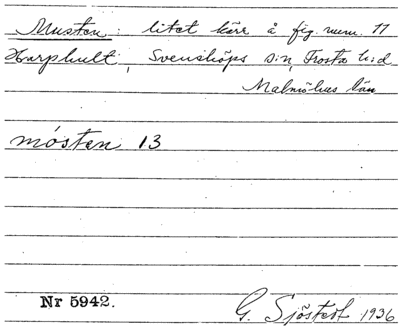 Musten : litet kärr å fig. num. 11
Harphult, Svensköps s:n, Frosta h:d
Malmöhus län
mósten 13
Nr 5942.
G. Sjöstedt 1936